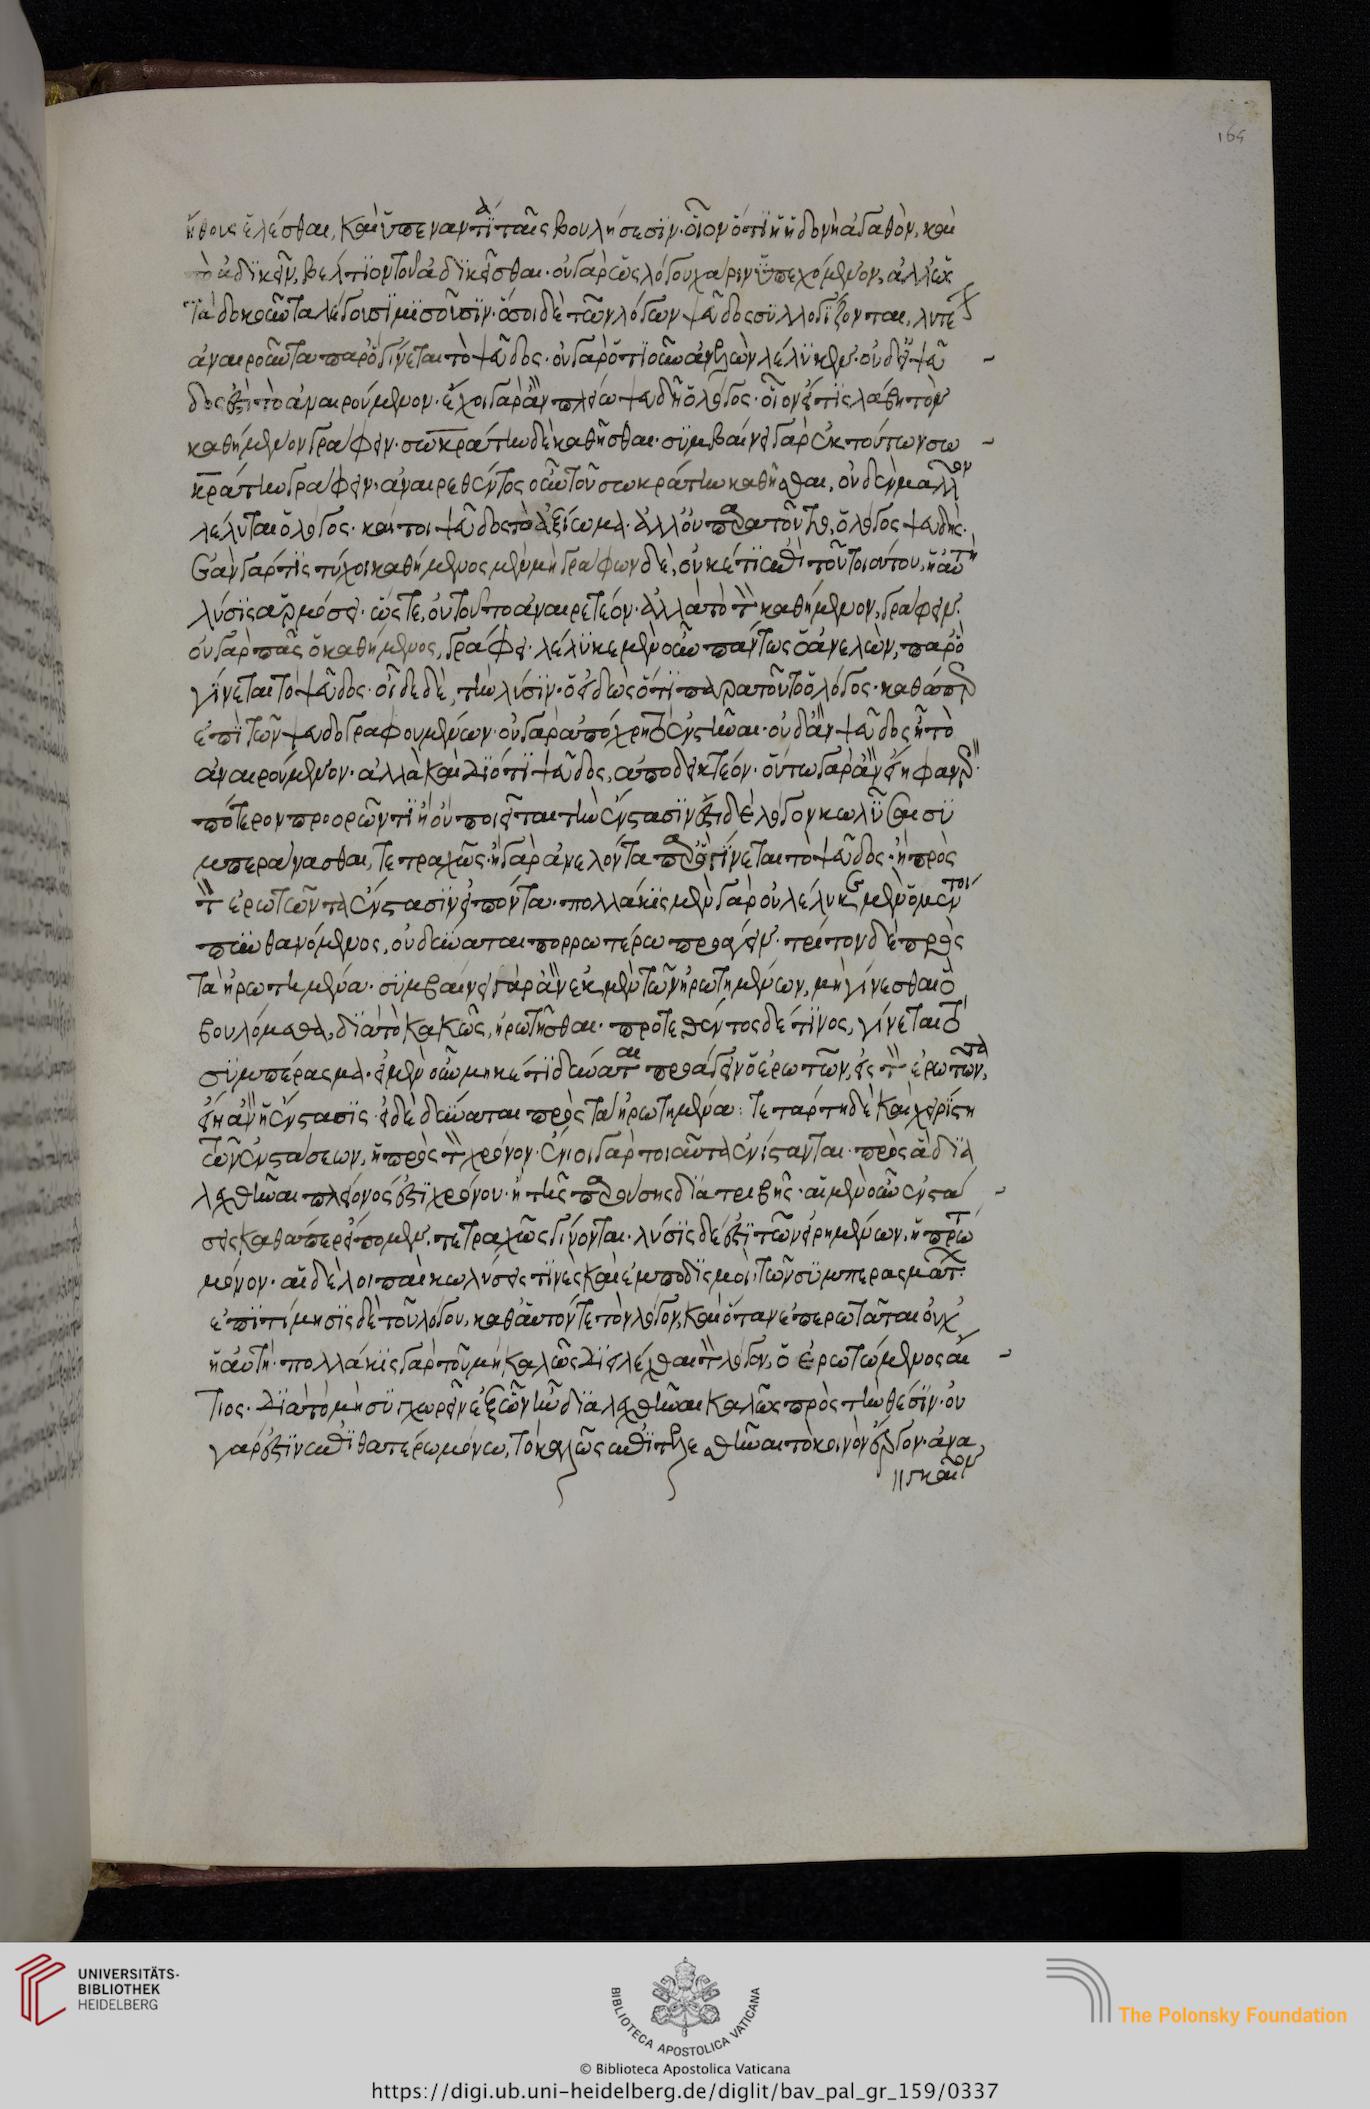 165
ἤθους ἑλέσθαι, καὶ ὑπεναντία ταῖς βουλήσεσιν· οἷον ὅτι ἡ ἡδονὴ ἀγαθὸν, καὶ
τὸ ἀδικεῖν, βέλτιον τοῦ ἀδικεῖσθαι· οὐ γὰρ ὡς λόγου χάριν ὑπεχόμενον, ἀλλ' ὡς
τὰ δοκοῦντα λέγουσι μισοῦσιν· ὅσοι δὲ τῶν λόγων ψεῦδος συλλογίζονται, λυτέον
ἀναιροῦντα παρ' ὃ γίνεται τὸ ψεῦδος· οὐ γὰρ ὁτιοῦν ἀνελὼν λέλυκεν· οὐδ' εἰ ψεῦ
δος ἐστὶ τὸ ἀναιρούμενον· ἔχοι γὰρ ἂν πλείω ψευδῆ ὁ λόγος· οἷον ἐάν τις λάβῃ τὸν
καθήμενον γράφειν· σωκράτην δὲ καθῆσθαι· συμβαίνει γὰρ ἐκ τούτων σω
κράτην γράφειν· ἀναιρεθέντος οὖν τοῦ σωκράτην καθῆσθαι, οὐδὲν μᾶλλον
λέλυται ὁ λόγος· καίτοι ψεῦδος τὸ ἀξίωμα· ἀλλ' οὐ παρὰ τοῦτο, ὁ λόγος ψευδής·
ἐὰν γάρ τις τύχοι καθήμενος μὲν μὴ γράφων δὲ, οὐκέτι ἐπὶ τοῦ τοιούτου, ἡ αὐτὴ
λύσις ἁρμόσει· ὥστε, οὐ τοῦτο ἀναιρετέον· ἀλλὰ τὸ τὸν καθήμενον, γράφειν·
οὐ γὰρ πᾶς ὁ καθήμενος, γράφει· λέλυκε μὲν οὖν πάντως ὁ ἀνελὼν, παρ' ὃ
γίνεται τὸ ψεῦδος· οἶδε δὲ, τὴν λύσιν· ὁ εἰδὼς ὅτι παρὰ τοῦτο ὁ λόγος· καθάπερ
ἐπὶ τῶν ψευδογραφουμένων· οὐ γὰρ ἀπόχρη τὸ ἐνστῆναι· οὐδ' ἂν ψεῦδος ᾖ τὸ
ἀναιρούμενον· ἀλλὰ καὶ διότι ψεῦδος, ἀποδεικτέον· οὕτω γὰρ ἂν εἴη φανερὸν
πότερον προορῶν τι ἢ οὒ ποιεῖται τὴν ἔνστασιν· ἔστι δὲ λόγον κωλῦσαι συ
μπεράνασθαι, τετραχῶς· ἢ γὰρ ἀνελόντα παρ' ὃ γίνεται τὸ ψεῦδος· ἢ πρὸς
τὸν ἐρωτῶντα ἔνστασιν εἰπόντα· πολλάκις μὲν γὰρ οὐ λέλυκε μὲν ὁ μέντοι
πυνθανόμενος, οὐ δύναται πορρωτέρω προαγαγεῖν· τρίτον δὲ πρὸς
τὰ ἠρωτημένα· συμβαίνει γὰρ ἂν ἐκ μὲν τῶν ἠρωτημένων, μὴ γίνεσθαι ὃ
βουλόμεθα, διὰ τὸ κακῶς, ἠρωτῆσθαι· προστεθέντος δέ τινος, γίνεται τὸ
συμπέρασμα· εἰ μὲν οὖν μηκέτι δύναται προάγειν ὁ ἐρωτῶν, εἰς τὸν ἐρωτῶντα,
εἴη ἂν ἡ ἔνστασις· εἰ δὲ δύναται πρὸς τὰ ἠρωτημένα: τετάρτη δὲ καὶ χειρίστη
τῶν ἐνστάσεων, ἡ πρὸς τὸν χρόνον· ἔνιοι γὰρ τοιαῦτα ἐνίστανται· πρὸς ἃ δια
λεχθῆναι πλείονός ἐστι χρόνου· ἢ τῆς παρούσης διατριβῆς· αἱ μὲν οὖν ἐνστά
σεις καθάπερ εἴπομεν, τετραχῶς γίνονται· λύσις δέ ἐστι τῶν εἰρημένων, ἡ πρώτη
μόνον· αἱ δὲ λοιπαὶ κωλύσεις τινὲς καὶ ἐμποδισμοὶ τῶν συμπερασμάτων·
ἐπιτίμησις δὲ τοῦ λόγου, καθ' αὑτόν τε τὸν λόγον, καὶ ὅταν ἐπερωτᾶται οὐχ'
ἡ αὐτή· πολλάκις γὰρ τοῦ μὴ καλῶς διειλέχθαι τὸν λόγον, ὁ ἐρωτώμενος αἴ
τιος· διὰ τὸ μὴ συγχωρεῖν ἐξ ὧν ἦν διαλεχθῆναι καλῶς πρὸς τὴν θέσιν· οὐ
γάρ ἐστιν ἐπὶ θατέρῳ μόνῳ, τὸ καλῶς ἐπιτελεσθῆναι τὸ κοινὸν ἔργον· ἀνα
γκαῖον
UNIVERSITÄTS-
BIBLIOTHEK
HEIDELBERG
BIBLIOTECA APOSTOLICA VATICANA
© Biblioteca Apostolica Vaticana
The Polonsky Foundation
https://digi.ub.uni-heidelberg.de/diglit/bav_pal_gr_159/0337